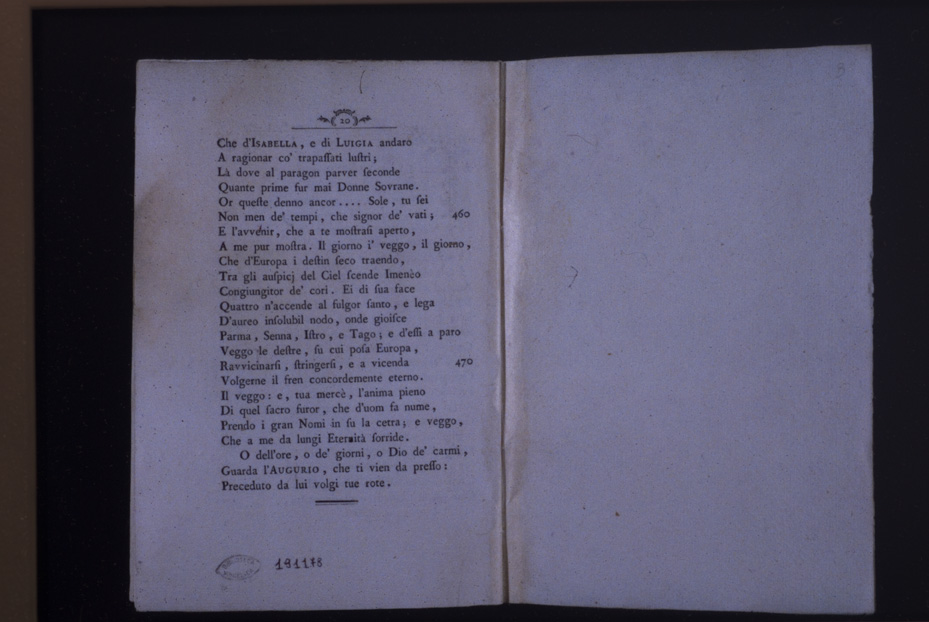 20
Che d'ISABELLA, e di LUIGIA andaro
A ragionar co' trapaſſati luſtri;
Là dove al paragon parver ſeconde
Quante prime fur mai Donne Sovrane.
Or queſte denno ancor.... Sole, tu ſei
Non men de' tempi, che signor de' vati; 460
E l'avvenir, che a te moſtraſi aperto,
A me pur moſtra. Il giorno i' veggo, il giorno,
Che d'Europa i deſtin ſeco traendo,
Tra gli auſpicj del Ciel ſcende Imenèo
Congiungitor de' cori. Ei di ſua face
Quattro n'accende al fulgor ſanto, e lega
D'aureo inſolubil nodo, onde gioiſce
Parma, Senna, Iſtro, e Tago; e d'eſſi a paro
Veggo le deſtre, ſu cui poſa Europa,
Ravvicinarſi, ſtringerſi, e a vicenda 470
Volgerne il fren concordemente eterno.
Il veggo: e, tua mercè, l'anima pieno
Di quel ſacro furor, che d'uom fa nume,
Prendo i gran Nomi in ſu la cetra; e veggo,
Che a me da lungi Eternità ſorride.
O dell'ore, o de' giorni, o Dio de' carmi,
Guarda l'AUGURIO, che ti vien da preſſo:
Preceduto da lui volgi tue rote.
191178